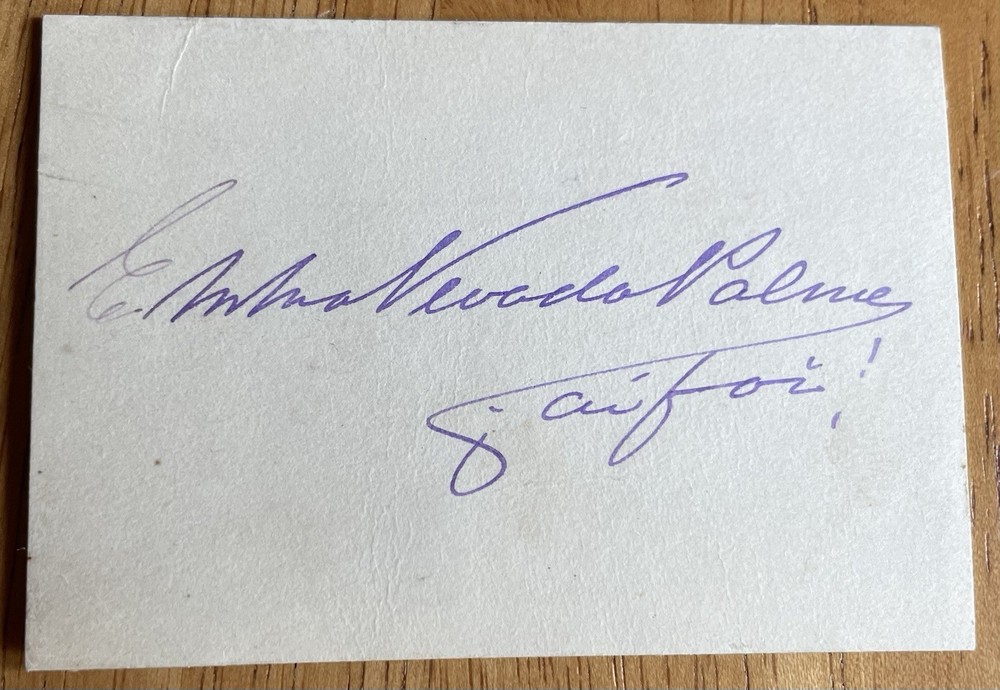 Emma Nevada Palmer
j'ai foi!